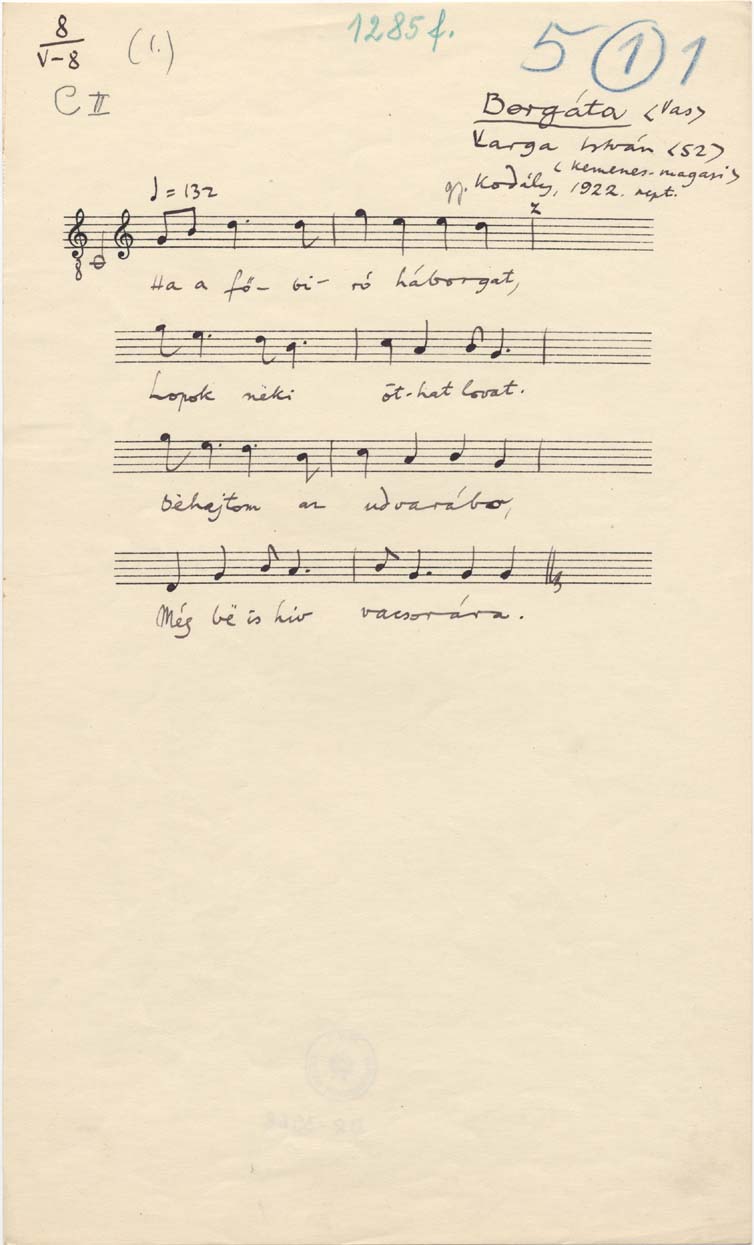 8
V-8
(1.)
1285 f.
5 1 1
C II
Borgáta <Vas>
Varga István <52>
(Kemenes-magasi)
gy. Kodály, 1922. szept.
♩ = 132
2
8
Ha a fő- bi- ró háborgat,
Lopok nëki öt-hat lovat.
Bëhajtom az udvarábo,
Még bë is hiv vacsorára.